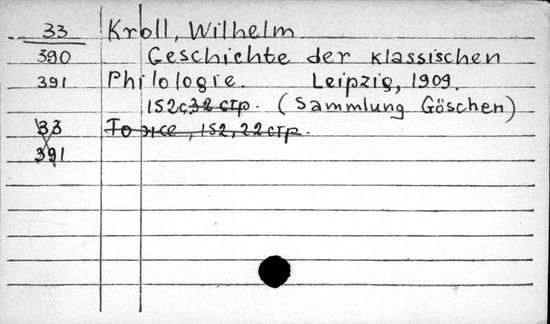 33 Kroll, Wilhelm
390 Geschichte der klassischen
391 Philologie. Leipzig, 1909.
152с, 32 стр. (Sammlung Göschen)
33 То же, 152, 22 стр.
391